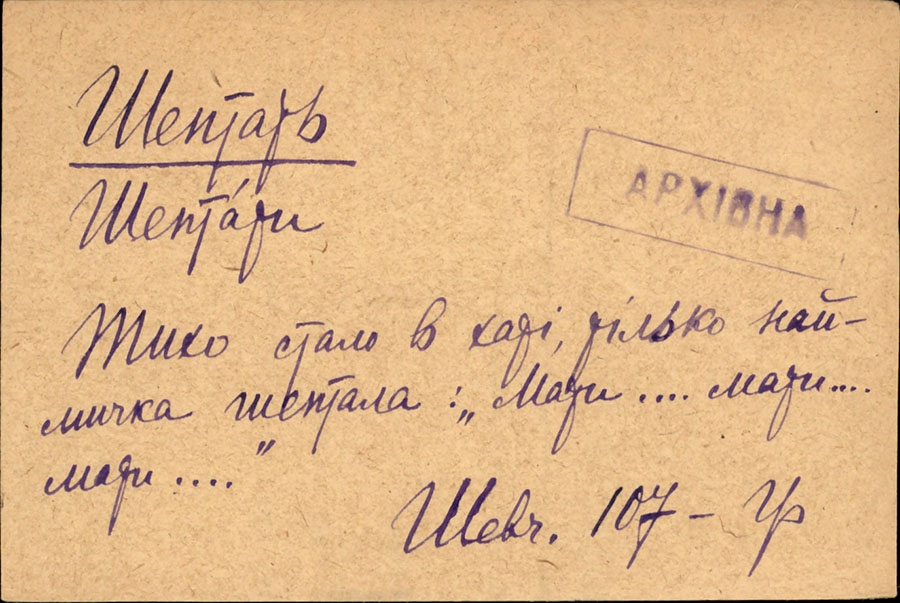 Шептать
Шепта́ти
АРХІВНА
Тихо стало в хаті, тілько най-
мичка шептала: „Мати .... мати....
мати ...."
Шевч. 107 –